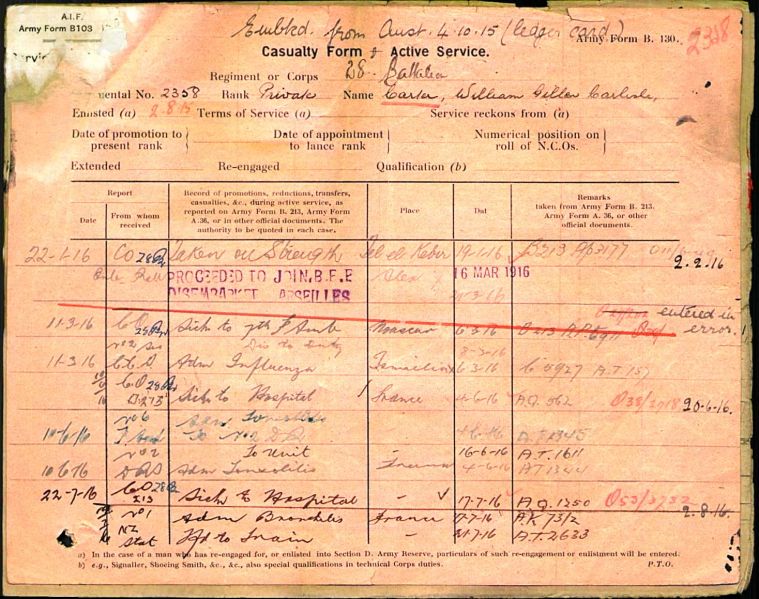 A.I.F.
Army Form B103
Embkd. from Aust. 4.10.15 (ledger card)
Army Form B. 130.
2358
Casualty Form Active Service.
Regiment or Corps 28 Battalion
ental No. 2358 Rank Private Name Carter, William Carlisle,
Enlisted (a) 2.8.15 Terms of Service (a) Service reckons from (a)
Date of promotion to present rank
Date of appointment to lance rank
Numerical position on roll of N.C.Os.
Extended Re-engaged Qualification (b)
Report
Date
From whom received
Record of promotions, reductions, transfers, casualties, &c., during active service, as reported on Army Form B. 213, Army Form A. 36, or in other official documents. The authority to be quoted in each case.
Place
Dat
Remarks taken from Army Form B. 213, Army Form A. 36, or other official documents.
22-1-16 CO 28Bn Taken on Strength Tel el Kebir 19-1-16 B213 2.2.16
PROCEEDED TO JOIN B.E.F. Alex 16 MAR 1916
DISEMBARKED MARSEILLES 21-3-16
entered in error.
11-3-16 CO 28Bn Sick to 7th F Amb Mascar 6-3-16
Dis to duty 8-3-16
11-3-16 Adm Influenza Ismailia 6-3-16 A.T.157
CO 28Bn B213 Sick to Hospital France 4-6-16 A.Q.862 20-6-16.
No 6 Adm Tonsilitis
10/6/16 To No 2 4-6-16 A.T.1345
No 2 To Unit 16-6-16 A.T.1611
10/6/16 DRS Adm Tonsolitis France 4-6-16 A.T.1344
22-7-16 CO 28Bn 213 Sick to Hospital - 17-7-16 A.Q.1250 2-8-16.
No 1 Adm Bronchitis France 17-7-16 A.K.7312
NZ Stat Tfd to Train - 21-7-16 A.T.2633
a) In the case of a man who has re-engaged for, or enlisted into Section D. Army Reserve, particulars of such re-engagement or enlistment will be entered.
b) e.g., Signaller, Shoeing Smith, &c., &c., also special qualifications in technical Corps duties.
P.T.O.